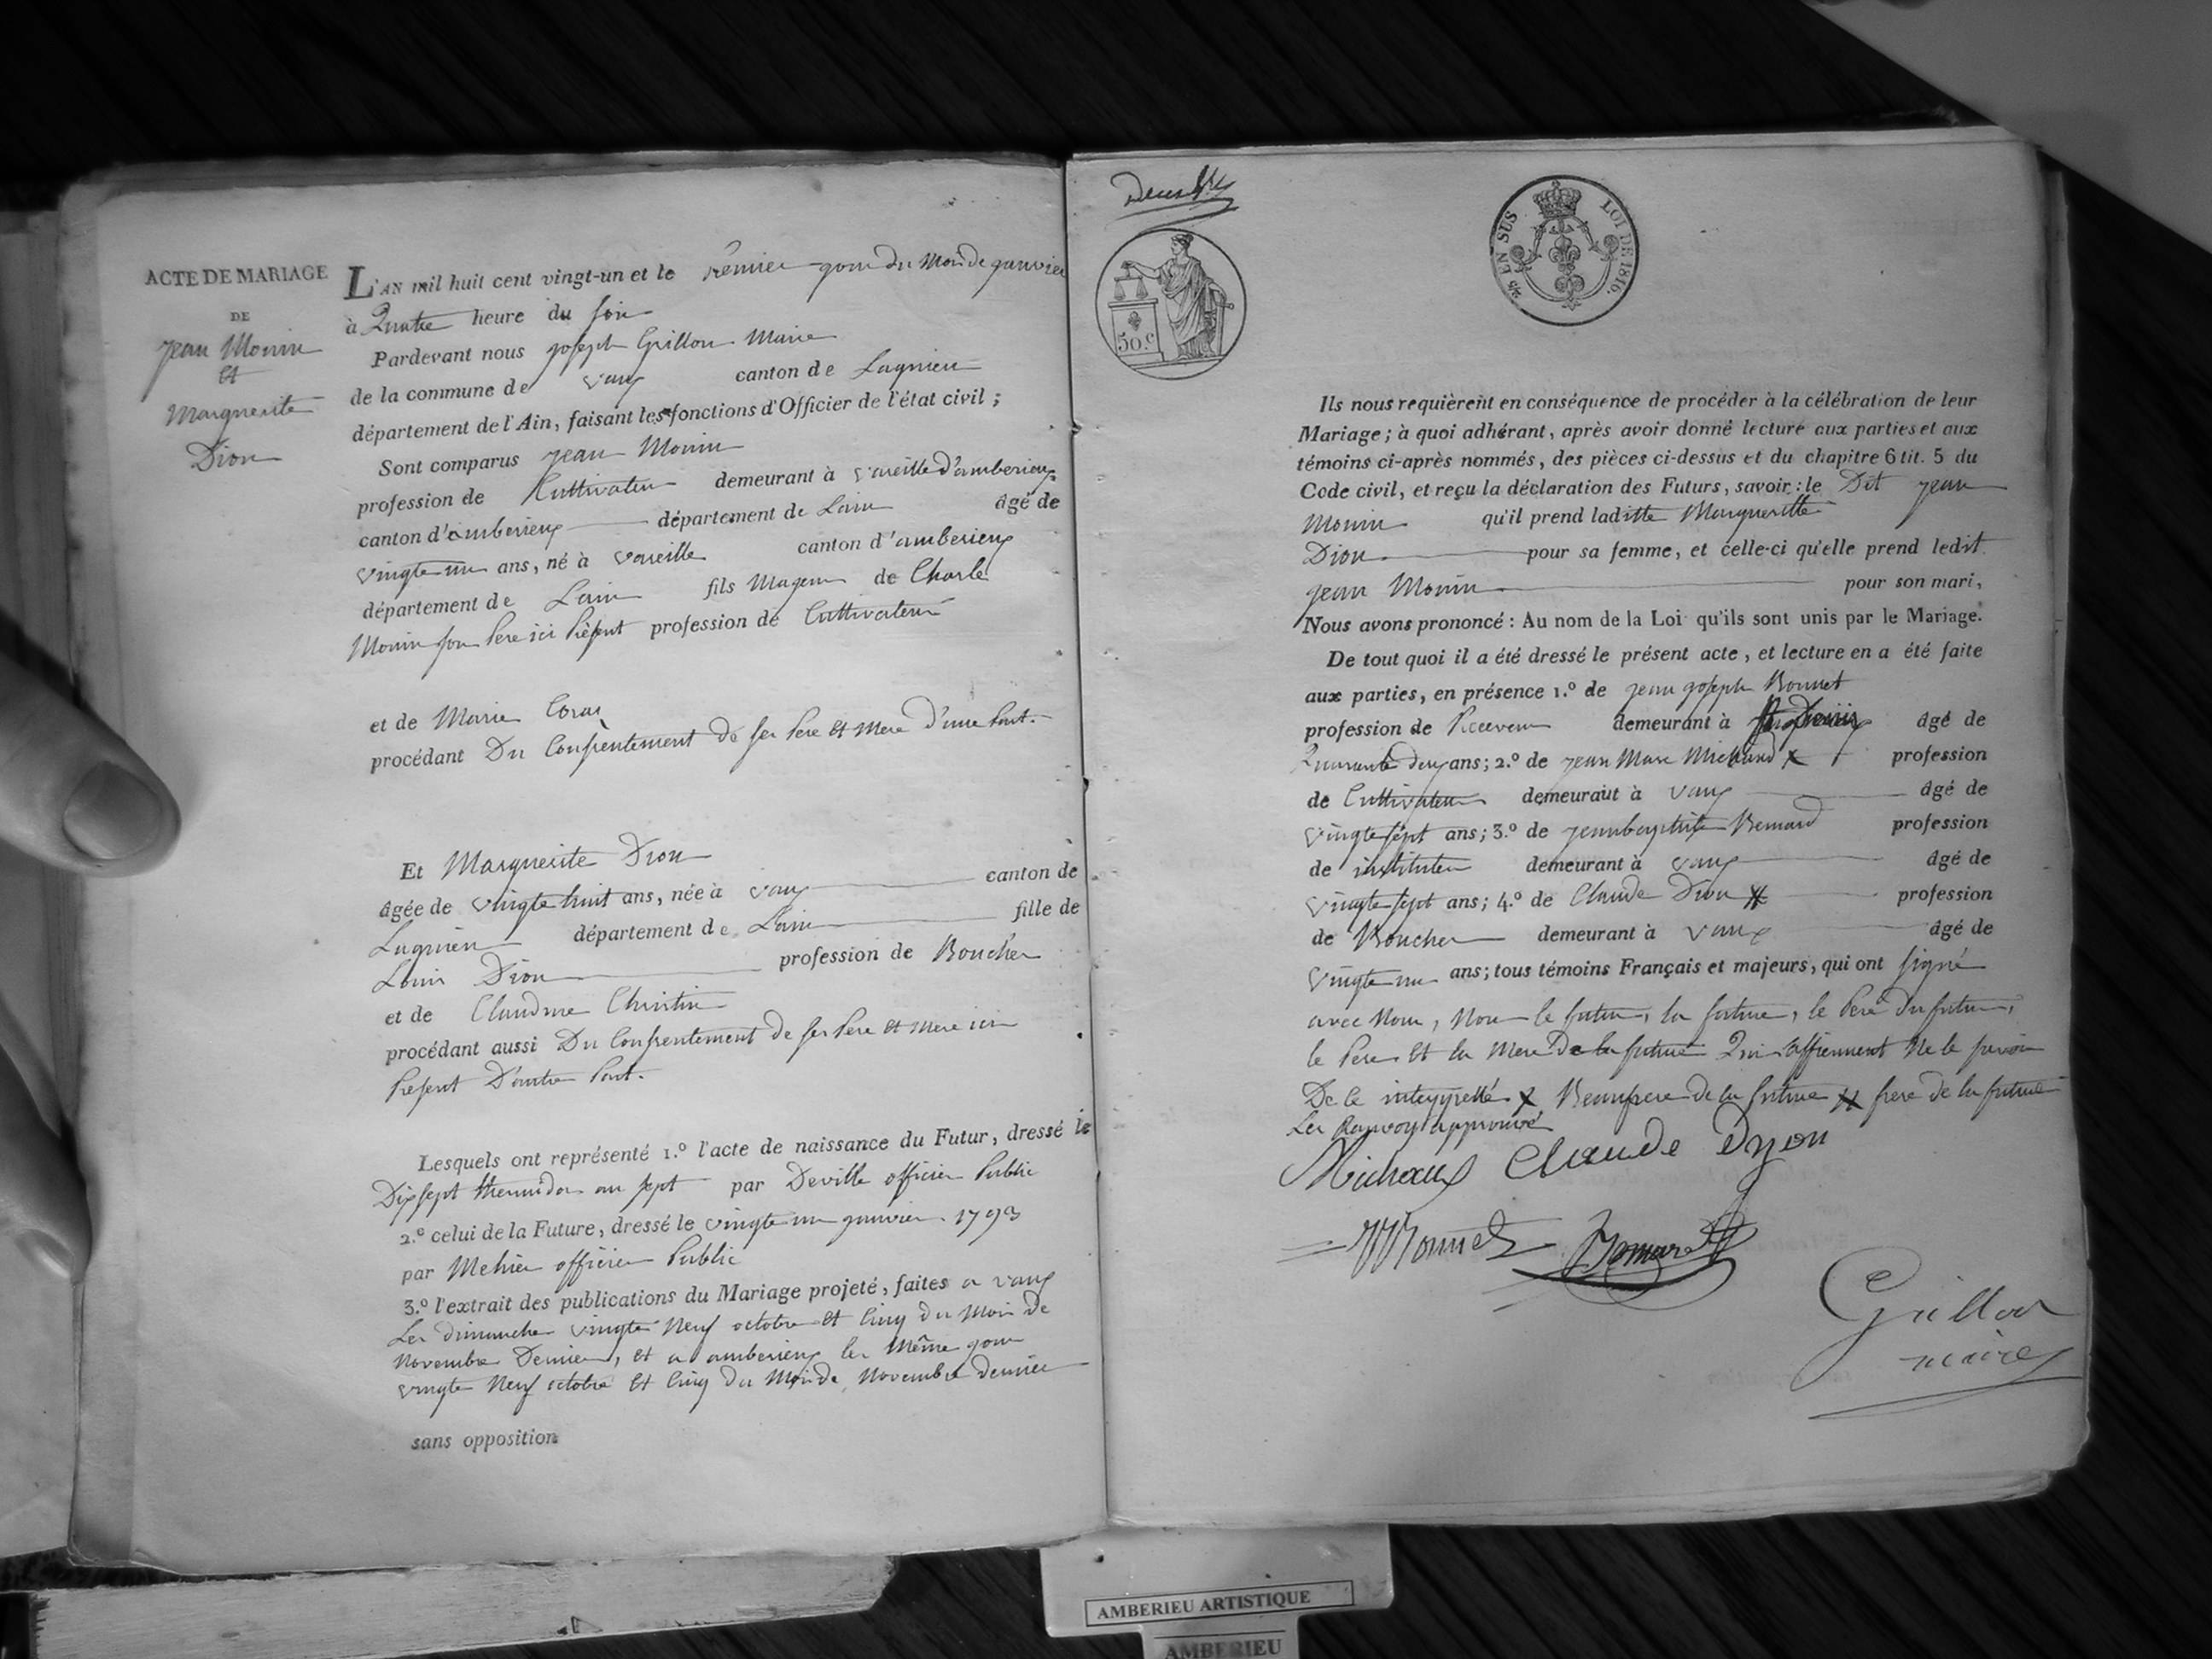 ACTE DE MARIAGE
DE
Jean Monin
et
Marguerite
Dion
L'AN mil huit cent vingt-un et le premier jour du mois de janvier
à Quatre heure du soir
Pardevant nous joseph Grillon Maire
de la commune de vaux canton de Lagnieu
département de l'Ain, faisant les fonctions d'Officier de l'état civil;
Sont comparus jean Monin
profession de Cultivateur demeurant à vareille d'amberieux
canton d'amberieux département de Lain âgé de
vingte un ans, né à vareille canton d'amberieux
département de Lain fils Majeur de Charle
Monin son Pere ici Présent profession de Cultivateur
et de Marie Coras
procédant Du Consentement de ses Pere et Mere d'une Part.
Et Marguerite Dion
âgée de vingte huit ans, née à vaux canton de
Lagnieu département de Lain fille de
Louis Dion profession de Boucher
et de Claudine Christin
procédant aussi Du Consentement de ses Pere et Mere ici
Présent D'autre Part.
Lesquels ont représenté 1.º l'acte de naissance du Futur, dressé le
Dix sept thermidor an sept par Deville officier Public
2.º celui de la Future, dressé le vingte un janvier 1793
par Mehier officier Public
3.º l'extrait des publications du Mariage projeté, faites a vaux
Les dimanche vingte Neuf octobre et Cinq du Mois de
Novembre Dernier, et a amberieux les Même jour
vingte Neuf octobre et Cinq du Mois de Novembre dernier
sans opposition
50.c
EN SUS LOI DE 1816.
Ils nous requièrent en conséquence de procéder à la célébration de leur
Mariage; à quoi adhérant, après avoir donné lecture aux parties et aux
témoins ci-après nommés, des pièces ci-dessus et du chapitre 6 tit. 5 du
Code civil, et reçu la déclaration des Futurs, savoir: le Dit jean
Monin qu'il prend laditte Margueritte
Dion pour sa femme, et celle-ci qu'elle prend ledit
jean Monin pour son mari,
Nous avons prononcé: Au nom de la Loi qu'ils sont unis par le Mariage.
De tout quoi il a été dressé le présent acte, et lecture en a été faite
aux parties, en présence 1.º de jean joseph Bonnet
profession de Receveur demeurant à âgé de
Quarante deux ans; 2.º de jean Marc Michaud x profession
de Cultivateur demeurant à vaux âgé de
vingte sept ans; 3.º de jean baptiste Bernard profession
de instituteur demeurant à vaux âgé de
vingte sept ans; 4.º de Claude Dion xx profession
de Boucher demeurant à vaux âgé de
vingte un ans; tous témoins Français et majeurs, qui ont signé
avec Nous, Non le futur, la future, le Pere du futur,
le Pere et la Mere De la future Qui affirment Ne le savoir
De ce interppellé x Beaufrere de la future xx frere de la future
Les Ranvoy approuvé
Michaux Claude Dyon
JJBonnet Bernard
Grillon
maire
AMBERIEU ARTISTIQUE
AMBERIEU